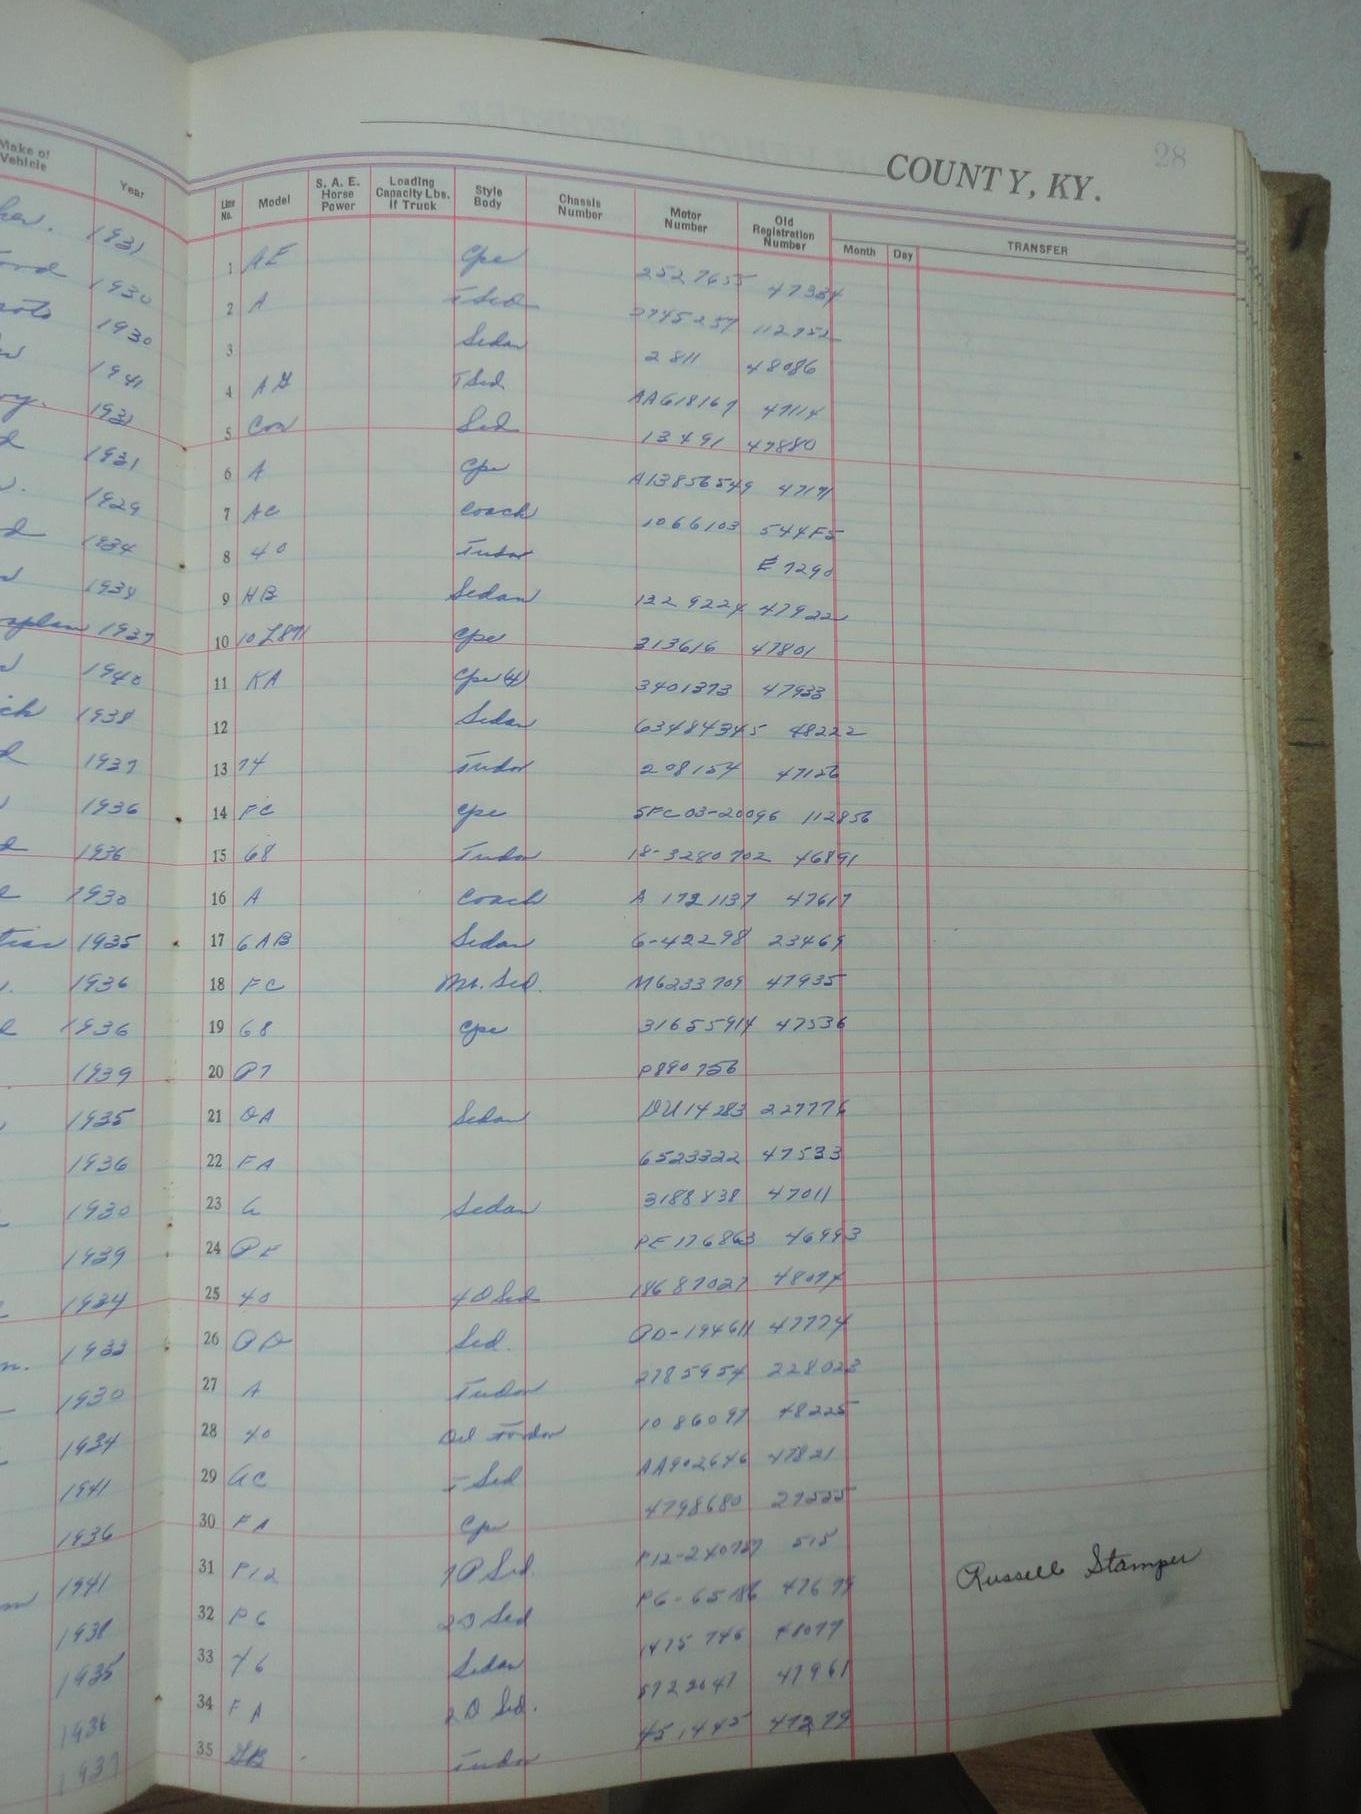 28
COUNTY, KY.
Make of Vehicle Year Line No. Model S. A. E. Horse Power Loading Capacity Lbs. If Truck Style Body Chassis Number Motor Number Old Registration Number Month Day TRANSFER
1931 1 AE Cpe 2527655 47334
1930 2 A T Sed 112752
1930 3 Sedan 2811 48086
1941 4 AG T Sed AA618167 47114
1931 5 Con Sed 13491 47880
1931 6 A Cpe A13856549 47171
1929 7 AC Coach 1066103 544F5
1934 8 40 Tudor E7290
1934 9 HB Sedan 1329224 47922
1937 10 Cpe 313616 47801
1940 11 KA Cpe (4) 3401373 47933
1938 12 Sedan 63484345 48222
1937 13 74 Tudor 208154 47126
1936 14 FC Cpe 5FC03-20096 112856
1936 15 68 Tudor 18-3280702 46891
1930 16 A Coach A 1721137 47617
1935 17 6AB Sedan 6-42298 23469
1936 18 FC Mr. Sed. M6233709 47935
1936 19 68 Cpe 31655914 47536
1939 20 P7 P890756
1935 21 Sedan DU14283 227776
1936 22 FA 6523322 47533
1930 23 Sedan 3188838 47011
1939 24 PE PE176863 46993
1934 25 40 4 D Sed 18687027 48074
1933 26 PD Sed. PD-194611 47774
1930 27 A Tudor 2785954 228023
1934 28 40 Del Fordor 1086097 48225
1941 29 AC T Sed AA902646 47821
1936 30 FA Cpe 4798680 27525
1941 31 P12 7P Sed. P12-240727 515
1938 32 P6 2 D Sed P6-65186 Russell Stamper
1935 33 Sedan 1475746 48077
1936 34 FA 2 D Sed. 5722047 47961
1937 35 GB Tudor 451445 47279